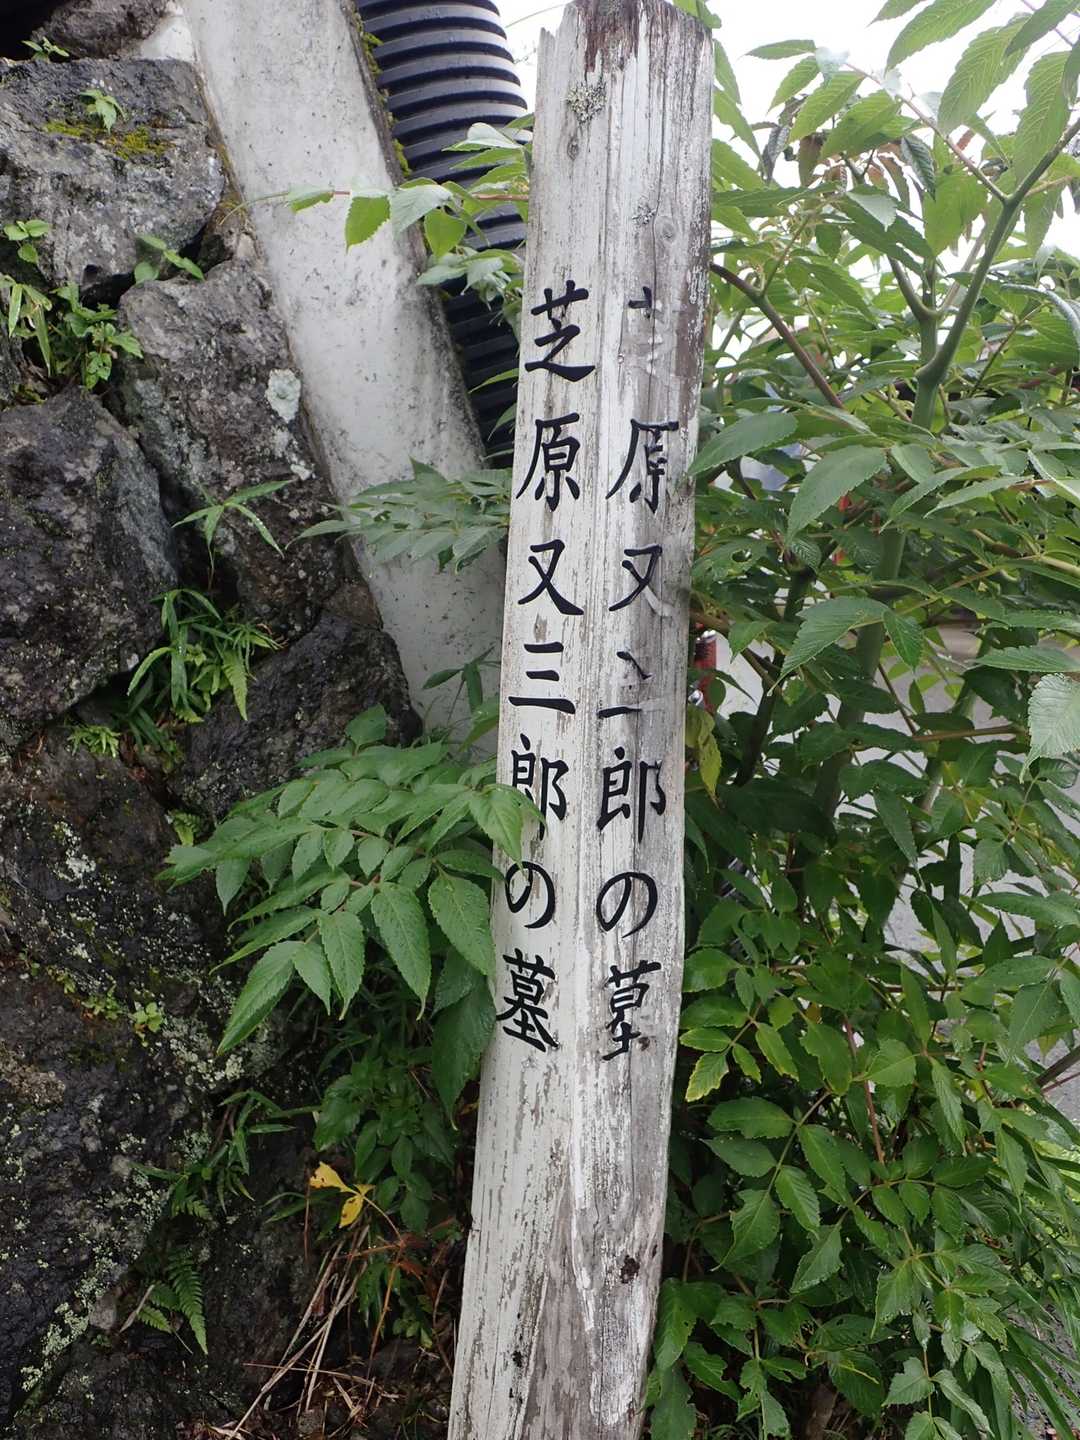 芝原又三郎の墓
原又三郎の墓